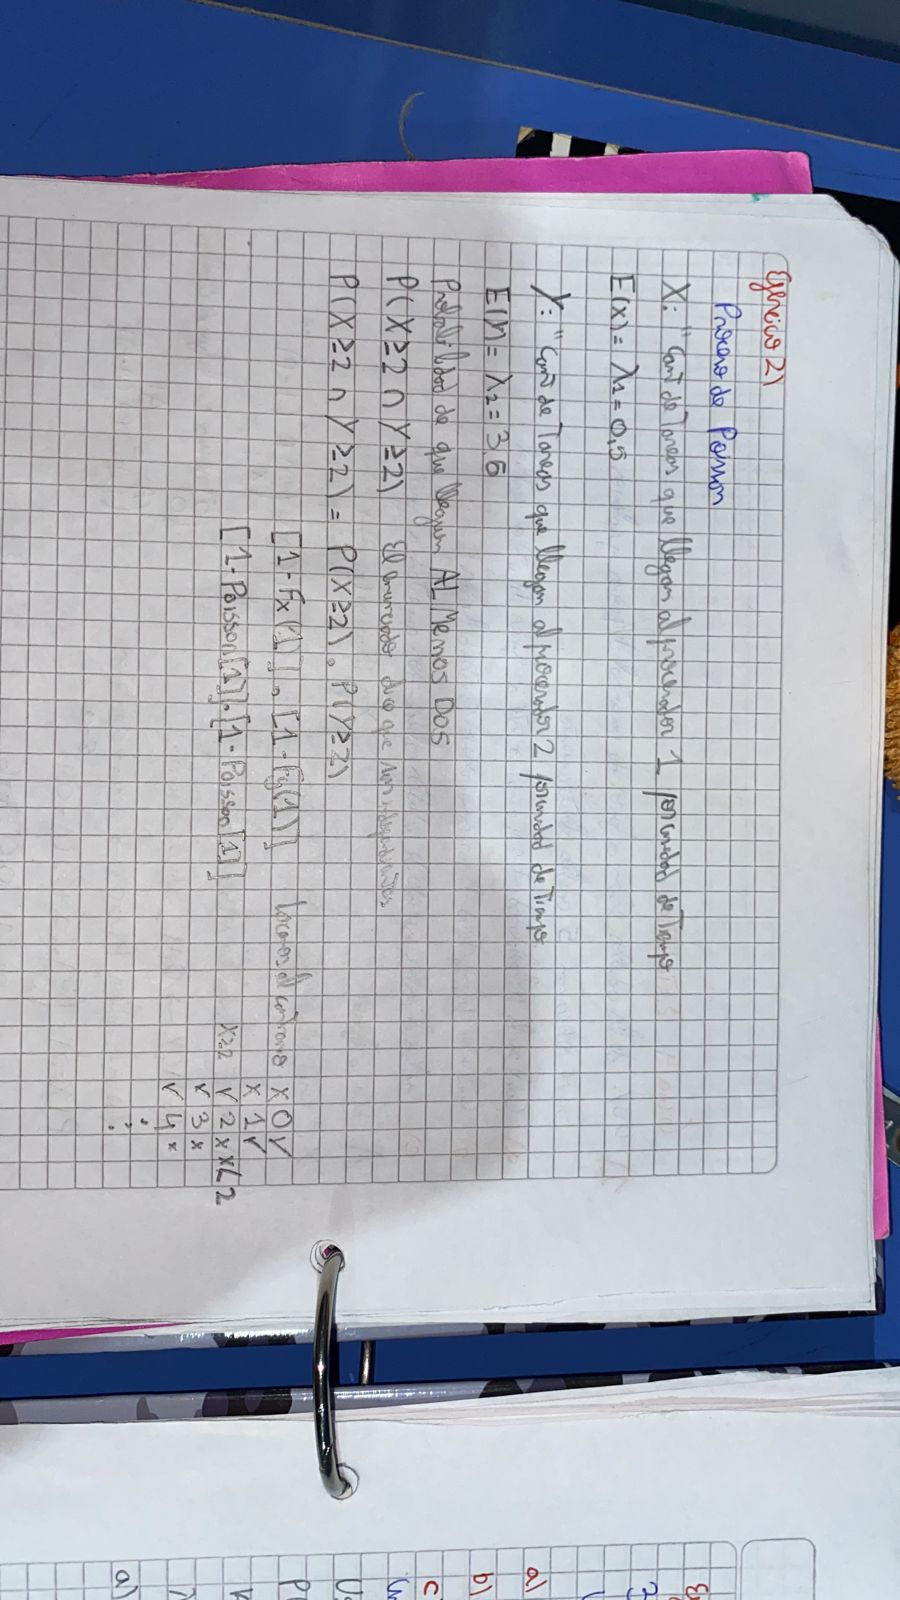 Ejercicio 2)
Proceso de Poisson
X: "Cant de Tareas que llegan al procesador 1 por unidad de Tiempo
E(x)= λ1= 0,5
Y: "Cant de Tareas que llegan al procesador 2 por unidad de Tiempo
E(Y)= λ2= 3,5
Probabilidad de que lleguen AL Menos DOS
P(X≥2 ∩ Y≥2) El enunciado dice que son independientes
P(X≥2 ∩ Y≥2) = P(X≥2) . P(Y≥2)
[1-Fx(1)] . [1-Fy(1)] lo contrario x 0 ✓
x 1 ✓
[1-Poisson[1]].[1-Poisson[1]] x≥2 ✓ 2 x x<2
✓ 3 x
✓ 4 x
a)
b)
c
a)